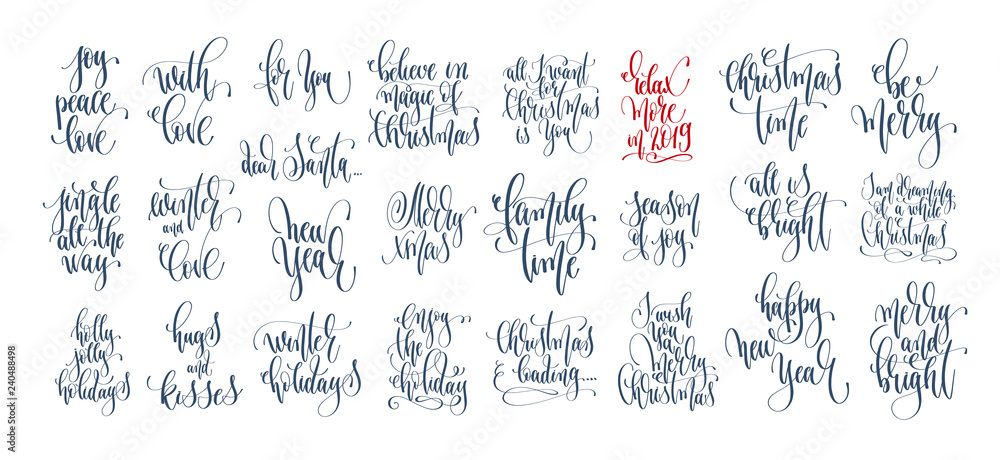 joy
peace
love
with
love
for you
believe in
magic of
Christmas
all I want
for
Christmas
is you
relax
more
in 2019
christmas
time
be
merry
dear Santa...
jingle
all the
way
winter
and
love
new
year
Merry
xmas
family
time
season
of joy
all is
bright
I am dreaming
of a white
Christmas
holly
jolly
holidays
hugs
and
kisses
winter
holidays
enjoy
the
holiday
christmas
loading....
I wish
you a
merry
Christmas
happy
new
year
merry
and
bright
Adobe Stock | #240488498